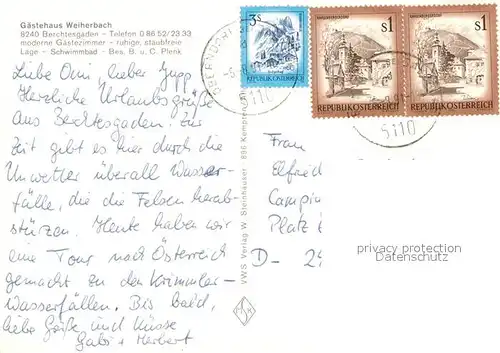 Gästehaus Weiherbach
8240 Berchtesgaden - Telefon 0 86 52/23 33
moderne Gästezimmer - ruhige, staubfreie
Lage - Schwimmbad - Bes. B. u. C. Plenk
Liebe Omi, lieber Jupp
Herzliche Urlaubsgrüße
aus Berchtesgaden. Zur
Zeit gibt es hier durch die
Unwetter überall Wasser-
fälle, die die Felsen herab-
stürzen. Heute haben wir
eine Tour nach Österreich
gemacht zu den Krimmler-
Wasserfällen. Bis bald,
liebe Grüße und Küsse
Gabi + Herbert
VWS Verlag W. Steinhäuser 896 Kempten
3s
REPUBLIK ÖSTERREICH
s1
REPUBLIK ÖSTERREICH
s1
REPUBLIK ÖSTERREICH
5110
5110
Frau
Elfried
Campin
Platz
D - 24
privacy protection
Datenschutz